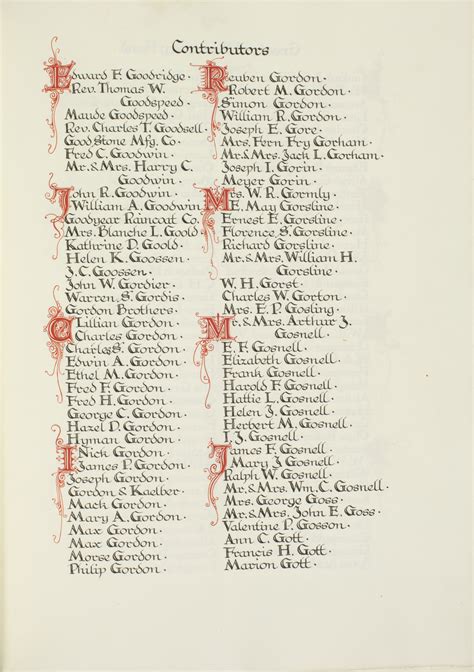 Contributors
Edward F. Goodridge.
Rev. Thomas W.
Goodspeed.
Maude Goodspeed.
Rev. Charles T. Goodsell.
Good Stone Mfg. Co.
Fred C. Goodwin.
Mr. & Mrs. Harry C.
Goodwin.
John R. Goodwin.
William A. Goodwin.
Goodyear Raincoat Co.
Mrs. Blanche L. Goold.
Kathrine D. Goold.
Helen K. Goossen.
J. C. Goossen.
John W. Gordier.
Warren S. Gordis.
Gordon Brothers.
C. Lillian Gordon.
Charles Gordon.
Charles S. Gordon.
Edwin A. Gordon.
Ethel M. Gordon.
Fred F. Gordon.
Fred H. Gordon.
George C. Gordon.
Hazel D. Gordon.
Hyman Gordon.
I. Nick Gordon.
James P. Gordon.
Joseph Gordon.
Gordon & Kaelber.
Mack Gordon.
Mary A. Gordon.
Max Gordon.
Max Gordon.
Morse Gordon.
Philip Gordon.
Reuben Gordon.
Robert M. Gordon.
Simon Gordon.
William R. Gordon.
Joseph E. Gore.
Mrs. Fern Fry Gorham.
Mr. & Mrs. Jack L. Gorham.
Joseph I. Gorin.
Meyer Gorin.
Mrs. W. R. Gormly.
E. May Gorsline.
Ernest E. Gorsline.
Florence S. Gorsline.
Richard Gorsline.
Mr. & Mrs. William H.
Gorsline.
W. H. Gorst.
Charles W. Gorton.
Mrs. E. P. Gosling.
Mr. & Mrs. Arthur J.
Gosnell.
E. F. Gosnell.
Elizabeth Gosnell.
Frank Gosnell.
Harold F. Gosnell.
Hattie L. Gosnell.
Helen J. Gosnell.
Herbert M. Gosnell.
I. J. Gosnell.
James F. Gosnell.
Mary J. Gosnell.
Ralph W. Gosnell.
Mr. & Mrs. Wm. C. Gosnell.
Mrs. George Goss.
Mr. & Mrs. John E. Goss.
Valentine P. Gosson.
Ann C. Gott.
Francis H. Gott.
Marion Gott.